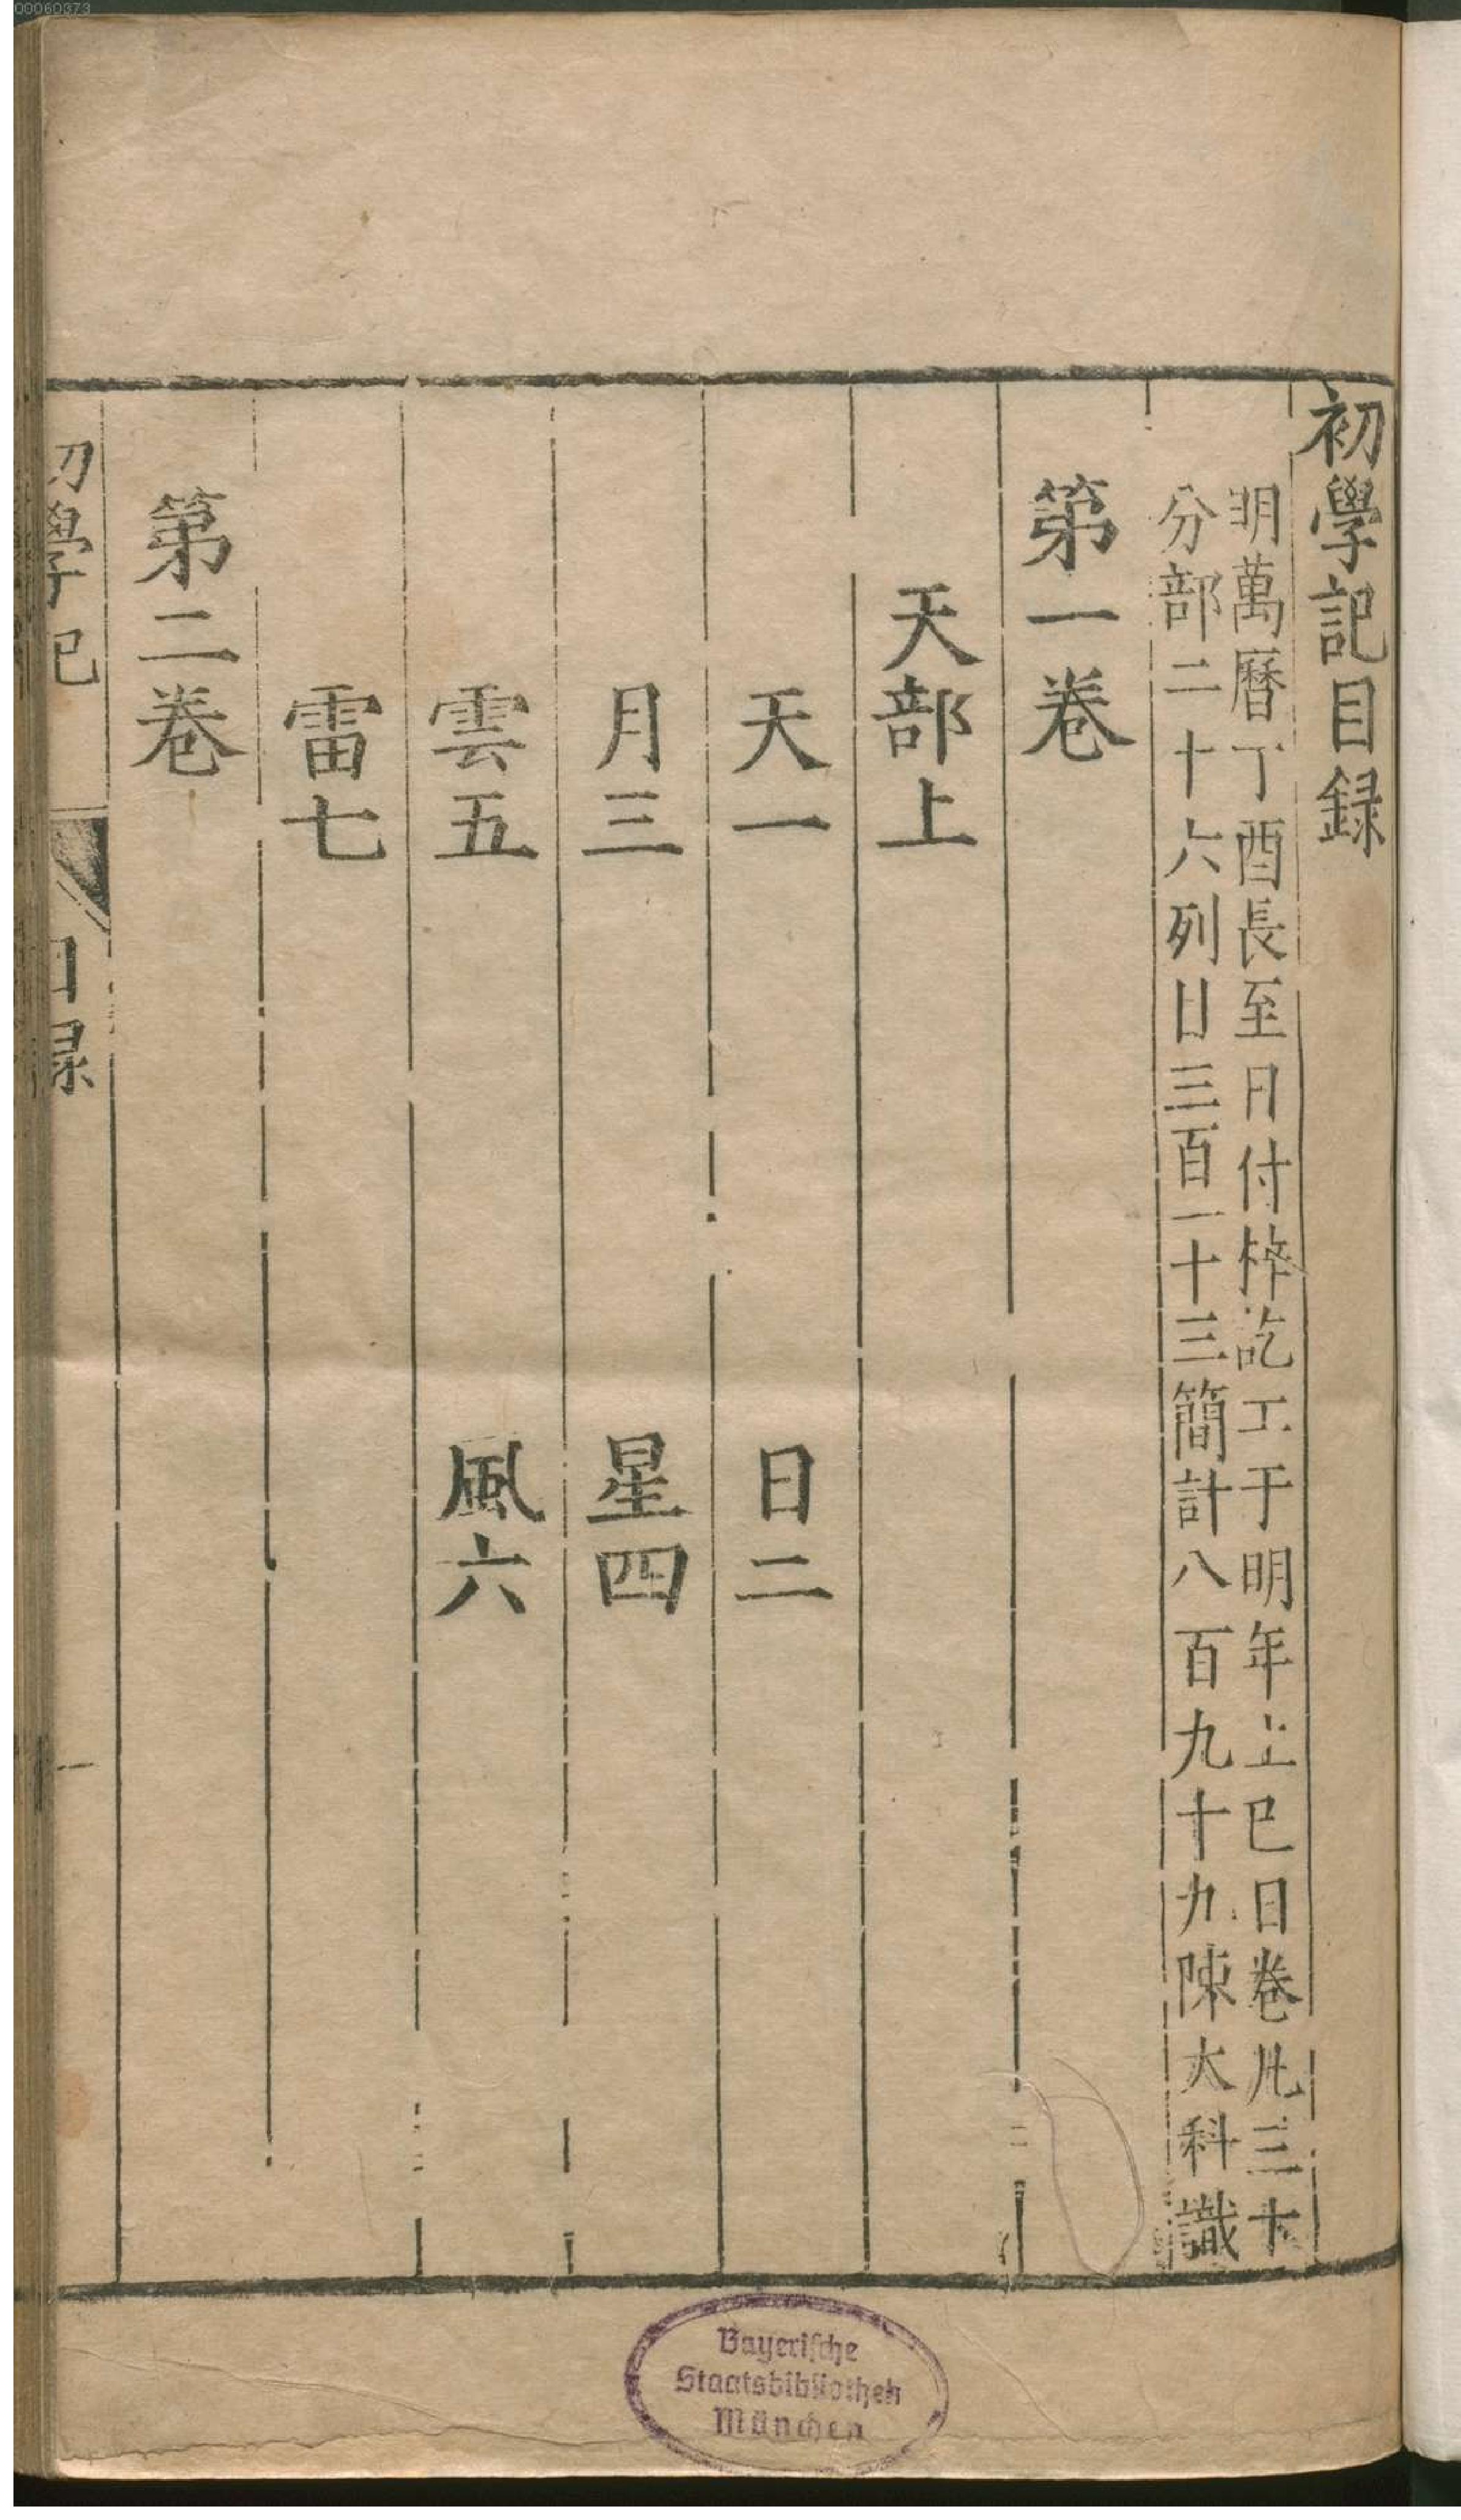 初學記目録
明萬曆丁酉長至日付梓訖工于明年上巳日卷凡三十
分部二十六列目三百一十三簡計八百九十九陳大科識
第一卷
天部上
天一 日二
月三 星四
雲五 風六
雷七
第二卷
初學記 目録 一
Bayerische
Staatsbibliothek
München
00060373